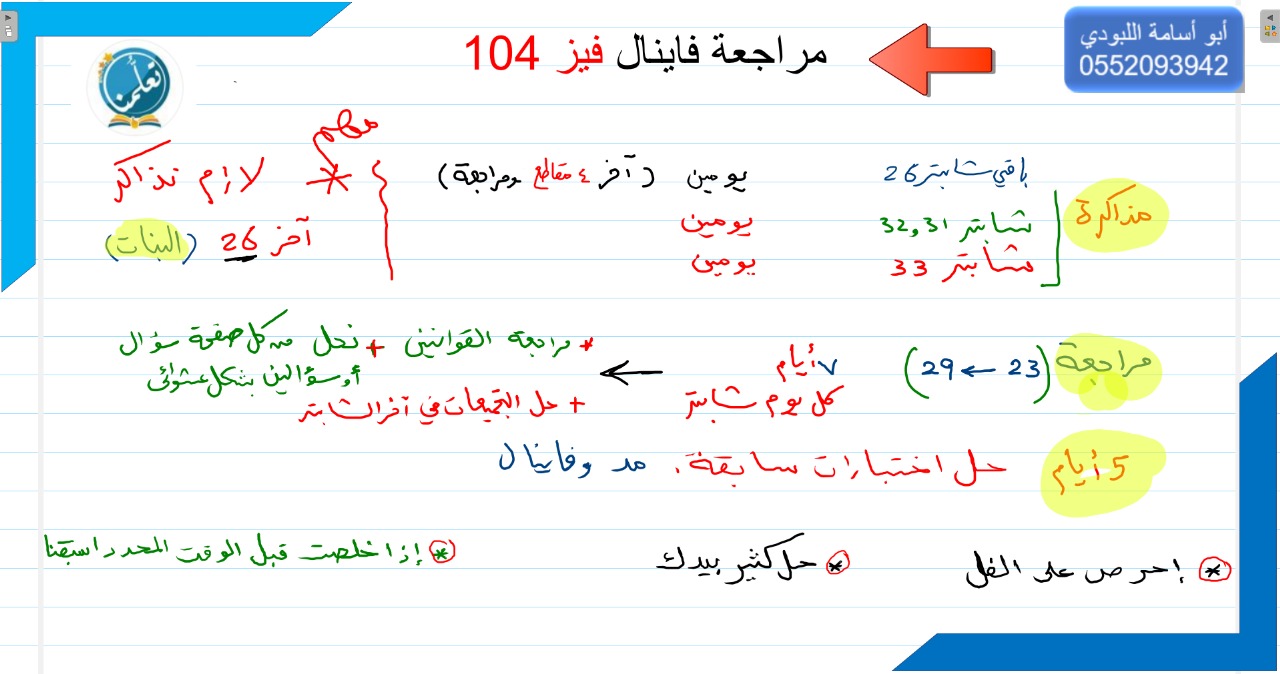 أبو أسامة اللبودي
0552093942
مراجعة فاينال فيز 104
تعلمنا
مذاكرة
باقي شابتر 26 يومين (آخر ٤ مقاطع ومراجعة)
شابتر 32,31 يومين
شابتر 33 يومين
مهم
* لازم تذاكر
آخر 26 (البنات)
مراجعة (23 ← 29)
٧ أيام
كل يوم شابتر
* مراجعة القوانين + نحل من كل صفحة سؤال
أو سؤالين بشكل عشوائي
+ حل التجميعات في آخر الشابتر
5 أيام حل اختبارات سابقة. مد وفاينال
* إحرص على الفل
* حل كثير بيدك
* إذا خلصت قبل الوقت المحدد اسبقنا